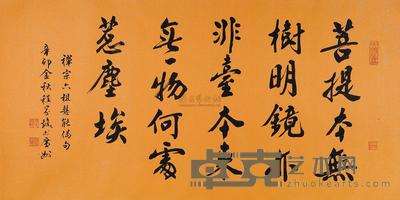 菩提本無
樹明鏡亦
非臺本来
無一物何處
惹塵埃
禪宗六祖慧能偈句
辛卯金秋程
卓克艺术网
zhuokearts.com